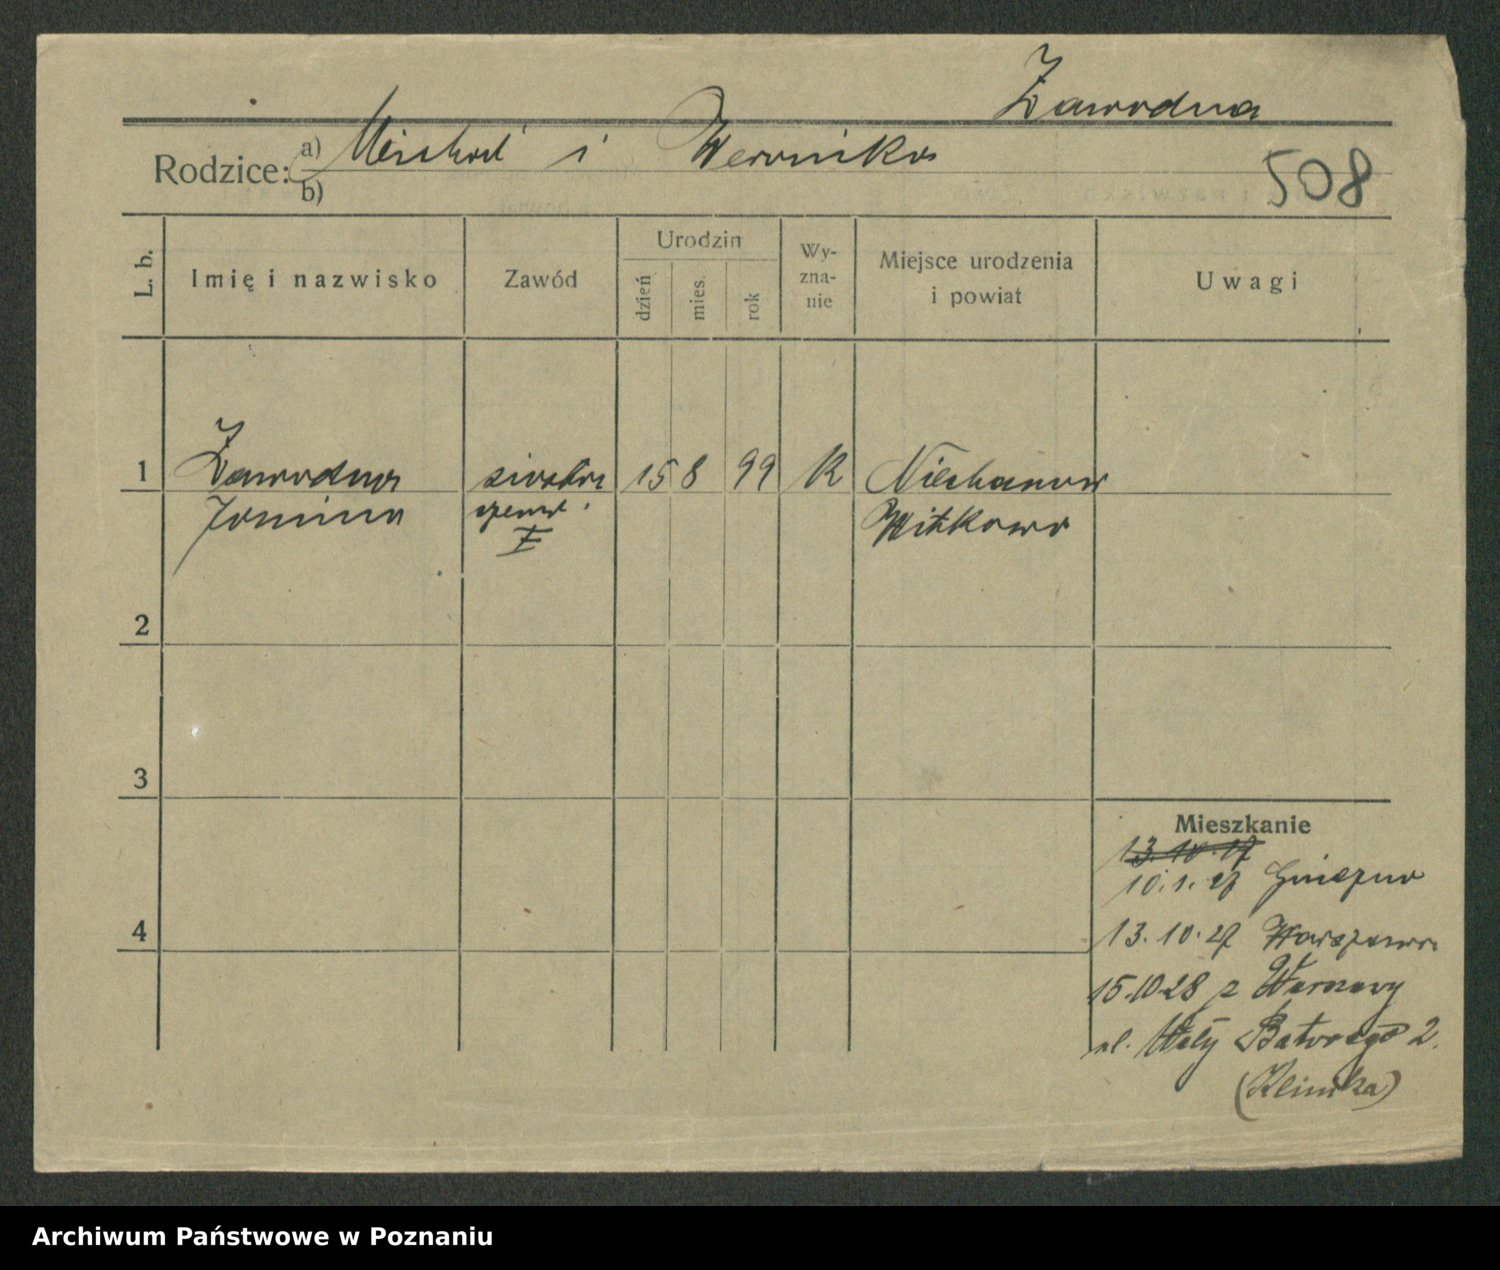 Zawodna
Rodzice: a) Michał i Weronika
b)
508
L. b. Imię i nazwisko Zawód Urodzin Wy-zna-nie Miejsce urodzenia i powiat Uwagi
dzień mies. rok
1 Zawodna siostra 15 8 99 K Niechanow
Janina czerw.
Witkowo
2
3
Mieszkanie
13.10.27
10.1.27 Gniezno
4
13.10.27 Warszawa
15.10.28 z Warszawy
ul. Wały Batorego 2.
(Klinika)
Archiwum Państwowe w Poznaniu